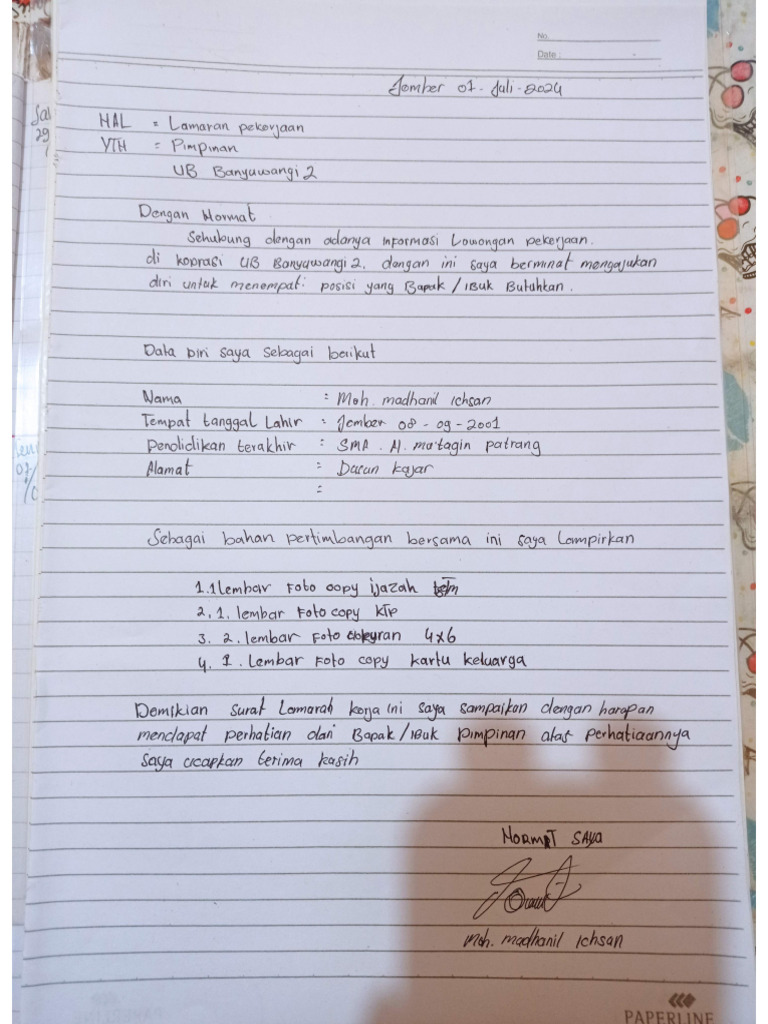 No.
Date :
Jember 01 - Juli - 2024
HAL = Lamaran pekerjaan
YTH = Pimpinan
UB Banyuwangi 2
Dengan Hormat
Sehubung dengan adanya informasi Lowongan pekerjaan.
di koprasi UB Banyuwangi 2, dengan ini saya berminat mengajukan
diri untuk menempati posisi yang Bapak / iBuk Butuhkan.
Data Diri saya sebagai berikut
Nama : Moh. madhanil ichsan
Tempat tanggal Lahir : Jember 08 - 09 - 2001
Pendidikan terakhir : SMA . Al. mutaqin patrang
Alamat : Dusun kajar
:
Sebagai bahan pertimbangan bersama ini saya Lampirkan
1. 1 lembar Foto copy ijazah
2. 1. lembar Foto copy KTP
3. 2. lembar Foto ukuran 4x6
4. 1. Lembar Foto copy kartu keluarga
Demikian surat Lamaran kerja ini saya sampaikan dengan harapan
mendapat perhatian dari Bapak / iBuk pimpinan atas perhatiaannya
saya ucapkan terima kasih
HORMAT SAYA
Moh. madhanil ichsan
PAPERLINE